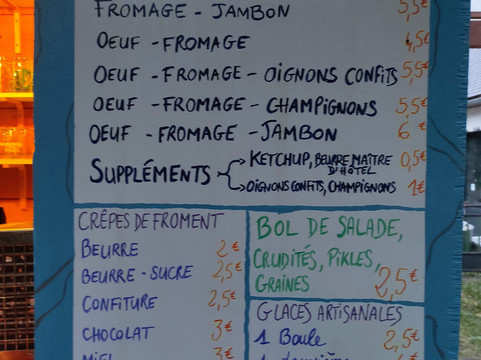 FROMAGE - JAMBON 5,5€
OEUF - FROMAGE 4,5€
OEUF - FROMAGE - OIGNONS CONFITS 5,5€
OEUF - FROMAGE - CHAMPIGNONS 5,5€
OEUF - FROMAGE - JAMBON 6€
SUPPLÉMENTS
KETCHUP, BEURRE MAÎTRE D'HÔTEL 0,5€
OIGNONS CONFITS, CHAMPIGNONS 1€
CRÊPES DE FROMENT
BEURRE 2€
BEURRE - SUCRE 2,5€
CONFITURE 2,5€
CHOCOLAT 3€
MIEL 3€
BOL DE SALADE,
CRUDITÉS, PIKLES,
GRAINES 2,5€
GLACES ARTISANALES
1 Boule 2,5€